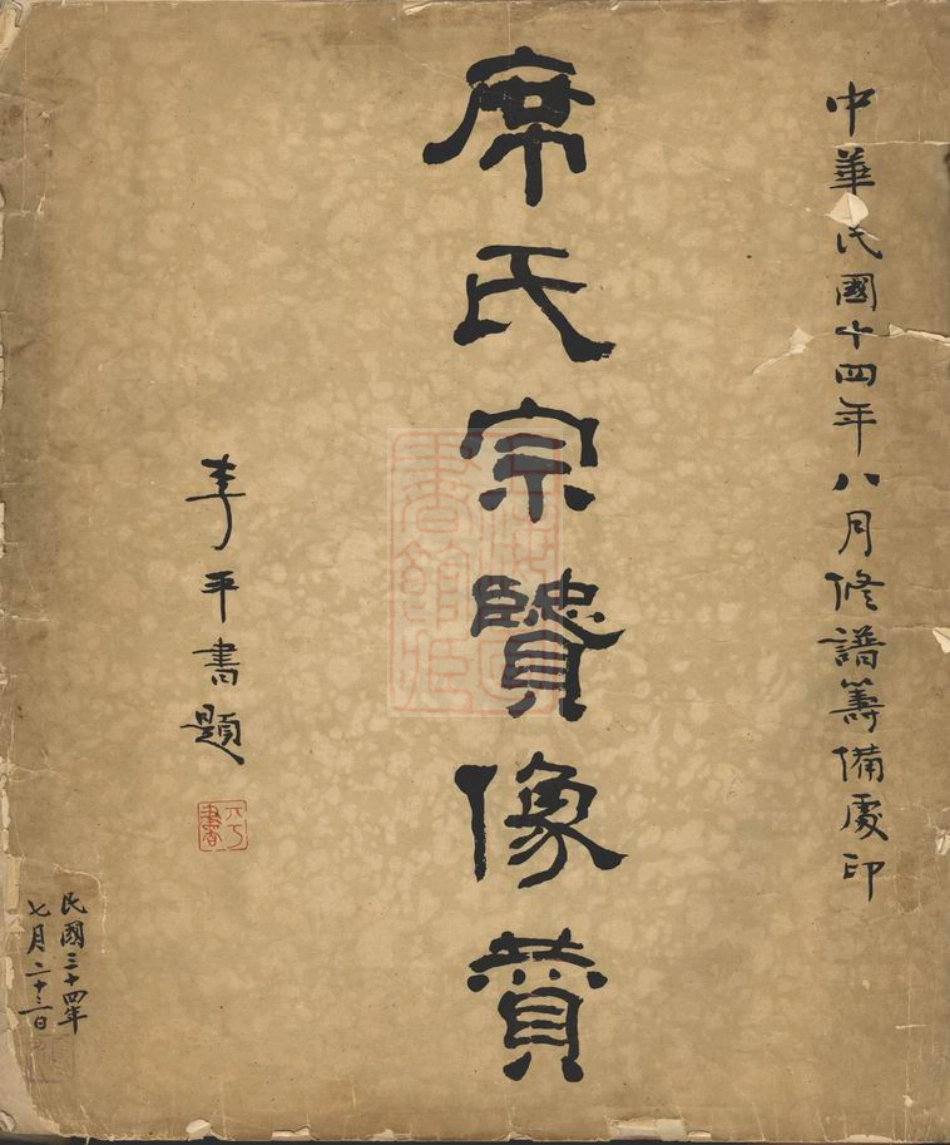 中華民國十四年八月修譜籌備處印
席氏宗賢像贊
李平書題
民國三十四年
七月二十三日